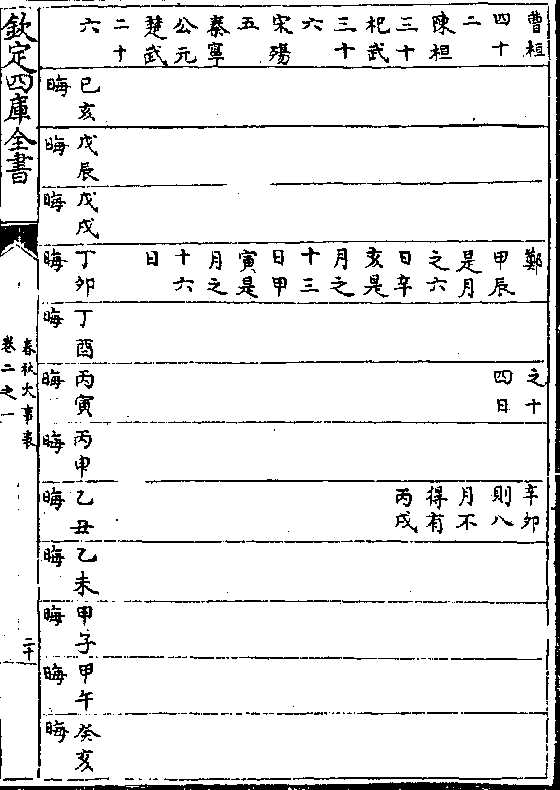 曹桓
四十
二
陳桓
三十
杞武
三十
六
宋殤
五
秦寧
公元
楚武
二十
六
己亥
晦
戊辰
晦
戊戌
晦
鄭
甲辰
是月
之六
日辛
亥是
月之
十三
日甲
寅是
月之
十六
日
丁卯
晦
丁酉
晦
之十
四日
丙寅
晦
丙申
晦
辛卯
則八
月不
得有
丙戌
乙丑
晦
乙未
晦
甲子
晦
甲午
晦
癸亥
晦
欽定四庫全書
春秋大事表
卷二之一
二十